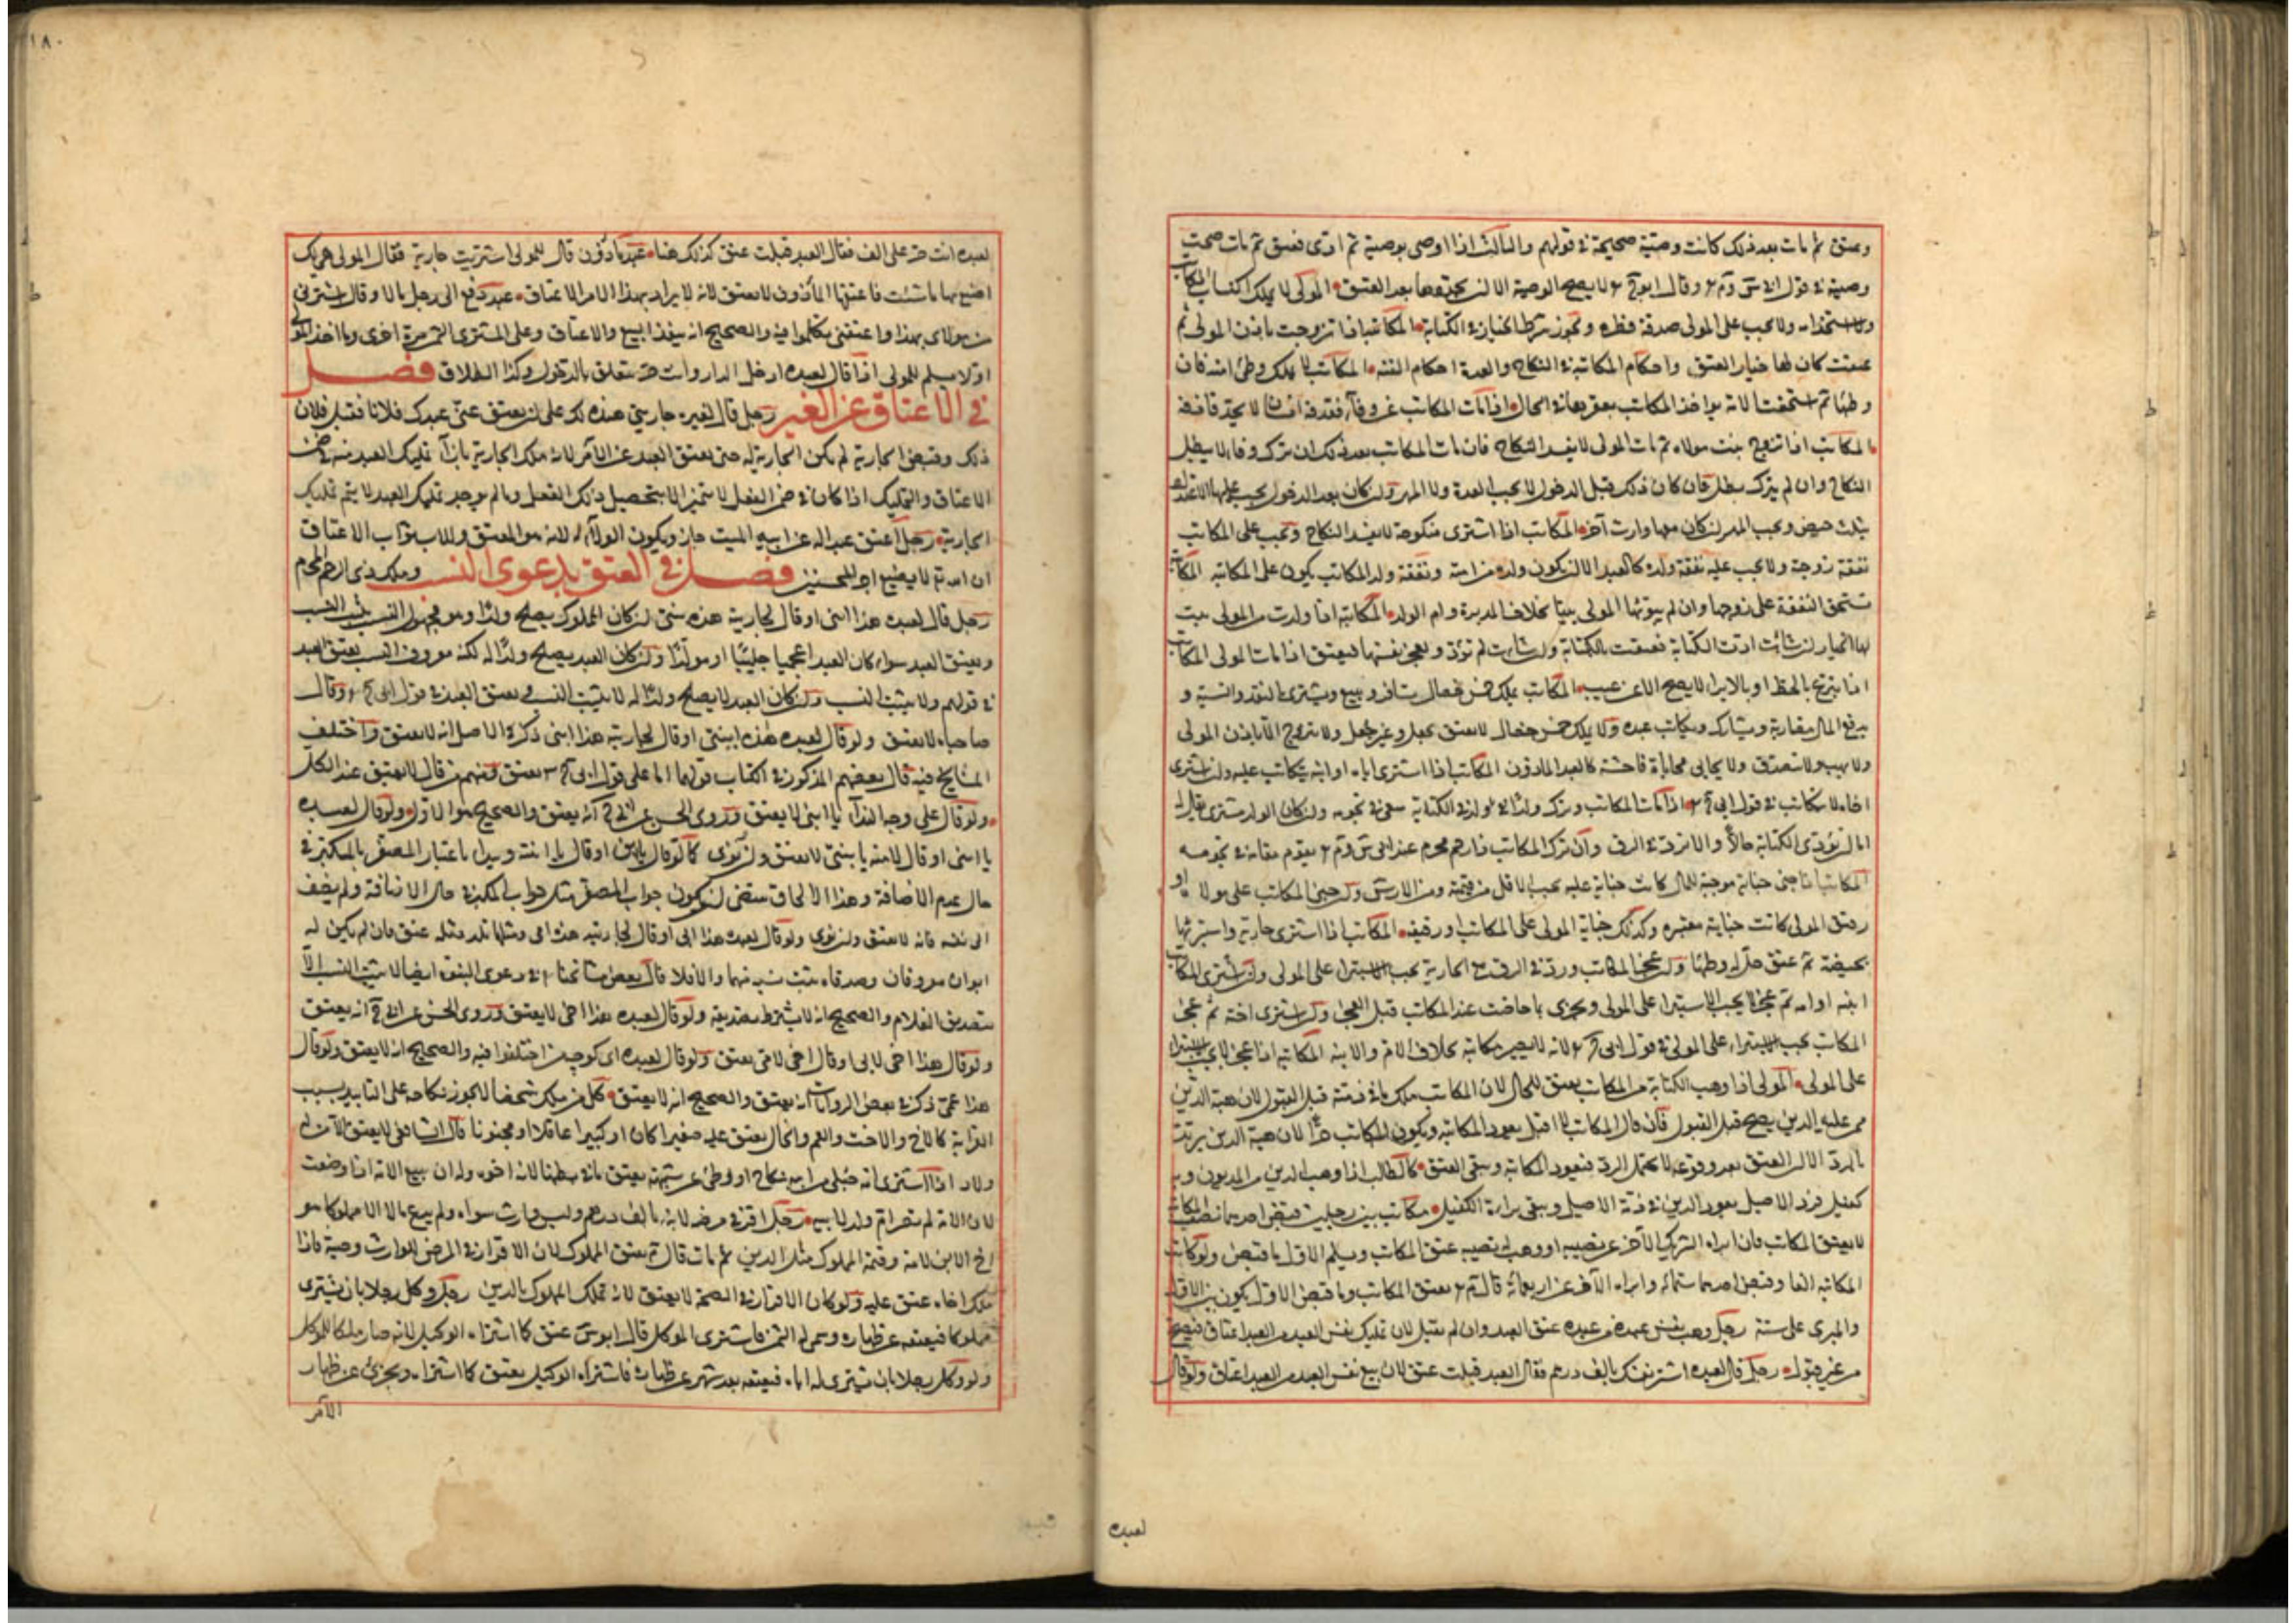 وعتق ثم مات بعد ذلك كانت وصيته صحيحة في قولهم والثالث اذا اوصى بوصية ثم ادى فعتق ثم مات صحت
وصيته في قول وقال لا يصح الوصية الا ان يجددها بعد العتق المولى لا يملك اكساب المكاتب
ولا استخدامه ولا يجب على المولى صدقة فطره ويجوز شرط الخيار في الكتابة المكاتبة اذا تزوجت باذن المولى ثم
عتقت كان لها خيار العتق واحكام المكاتبة في النكاح والعدة احكام القنة المكاتب لا يملك وطئ امته فان
وطئها ثم استحقت لانه يؤاخذ المكاتب بعقرها في الحال اذا مات المكاتب عن وفاء فقذفه انسان لا يحد قاذفه
المكاتب اذا تزوج بنت مولاه ثم مات المولى لا يفسد النكاح فان مات المكاتب بعد ذلك ان ترك وفاء لا يبطل
النكاح وان لم يترك بطل فان كان ذلك قبل الدخول لا يجب العدة ولا المهر وان كان بعد الدخول يجب عليها الاعتداد
بثلث حيض ويجب المهر ان كان معها وارث آخر المكاتب اذا اشترى منكوحته لا يفسد النكاح ويجب على المكاتب
نفقة زوجته ولا يجب عليه نفقة ولده كالعبد الا ان يكون ولده من امته ونفقة ولد المكاتب يكون على المكاتبة المكاتبة
تستحق النفقة على زوجها وان لم يبوئها المولى بيتا بخلاف المدبرة وام الولد المكاتبة اذا ولدت من المولى يثبت
لها الخيار ان شائت ادت الكتابة فعتقت بالكتابة وان شائت لم تؤد و تعجز نفسها فيعتق اذا مات المولى المكاتب
اذا تبرع بالحط او بالابراء لا يصح الا عن عيب المكاتب يملك خمس خصال يسافر ويبيع ويشترى بالنقد والنسية و
يدفع المال مضاربة ويشارك ويكاتب عبده ولا يملك خمس خصال لا يعتق بجعل وغير جعل ولا يتزوج الا باذن المولى
ولا يهب ولا يتصدق ولا يحابى محاباة فاحشة كالعبد الماذون المكاتب اذا اشترى اباه او ابنه يكاتب عليه وان اشترى
اخاه لا يتكاتب في قول اذا مات المكاتب وترك ولدا ولد في الكتابة سعى في نجومه وان كان الولد مشترى يقال له
اما ان تؤدى الكتابة حالا والا ترد في الرق وان ترك المكاتب ذا رحم محرم عند يقوم مقامه في نجومه
المكاتب اذا جنى جناية موجبة للمال كانت جناية عليه يجب الاقل من قيمته ومن الارش وان جنى المكاتب على مولاه او
رقيق المولى كانت جنايته معتبرة وكذلك جناية المولى على المكاتب او رقيقه المكاتب اذا اشترى جارية واستبرئها
بحيضة ثم عتق حل له وطئها وان عجز المكاتب ورد في الرق مع الجارية يجب الاستبراء على المولى وان اشترى المكاتب
ابنته او امه ثم عجز لا يجب الاستبراء على المولى ويجزى بما حاضت عند المكاتب قبل العجز وان اشترى اخته ثم عجز
المكاتب يجب الاستبراء على المولى في قول لانه لا يصير مكاتبة بخلاف الام والابنة المكاتبة اذا عجزت لا يجب الاستبراء
على المولى المولى اذا وهب الكتابة من المكاتب يعتق للحال لان المكاتب ملك ما في ذمته قبل القبول لان هبة الدين
ممن عليه الدين يصح قبل القبول فان قال المكاتب لا اقبل يعود المكاتبة ويكون المكاتب حرا لان هبة الدين يرتد
بالرد الا ان العتق بعد وقوعه لا يحتمل الرد فتعود المكاتبة ويبقى العتق كالطالب اذا وهب الدين من المديون وبه
كفيل فرد الاصيل يعود الدين في ذمة الاصيل ويبقى براءة الكفيل مكاتب بين رجلين قبض احدهما نصيبه
لا يعتق المكاتب فان ابراه الشريك الآخر عن نصيبه او وهب له نصيبه عتق المكاتب ويسلم الاول ما قبض ولو كانت
المكاتبة الفا وقبض احدهما ستمائة وابراه الآخر عن اربعمائة قال يعتق المكاتب وما قبض الاول يكون بين الاول
والمبرى على ستة رجل وهب نفس عبده من عبده عتق العبد وان لم يقبل لان تمليك نفس العبد من العبد اعتاق فيصح
من غير قبول رجل قال لعبده اشتر نفسك بالف درهم فقال العبد قبلت عتق لان بيع نفس العبد من العبد اعتاق ولو قال
لعبده
١٨٠
لعبده انت حر على الف فقال العبد قبلت عتق كذلك هنا عبد ماذون قال للمولى اشتريت جارية فقال المولى هي لك
اصنع بها ما شئت فاعتقها المأذون لا يعتق لانه لا يراد بهذا الامر الاعتاق عبد دفع الى رجل مالا وقال اشترنى
من مولاى بهذا واعتقنى تكلموا فيه والصحيح انه ينفذ البيع والاعتاق وعلى المشترى الثمن مرة اخرى وما اخذ المولى
اولا يسلم للمولى اذا قال لعبده ادخل الدار وانت حر يتعلق بالدخول وكذا الطلاق فصل
في الاعتاق عن الغير رجل قال لغيره جاريتي هذه لك على ان يعتق عنى عبدك فلانا فقبل فلان
ذلك وقبض الجارية لم يكن الجارية له حتى يعتق العبد عن الآمر لانه ملك الجارية بازاء تمليك العبد منه في ضمن
الاعتاق والتمليك اذا كان في ضمن الفعل لا يتم الا بتحصيل ذلك الفعل وما لم يوجد تمليك العبد لا يتم تمليك
الجارية رجل اعتق عبدا له عن ابيه الميت جاز ويكون الولاء له لانه هو المعتق وللاب ثواب الاعتاق
ان الله تع لا يضيع اجر المحسنين فصل في العتق بدعوى النسب وملك ذى الرحم المحرم
رجل قال لعبده هذا ابنى او قال لجاريته هذه بنتى ان كان المملوك يصلح ولدا وهو مجهول النسب يثبت النسب
ويعتق العبد سواء كان العبد اعجميا جليبا او مولدا وان كان العبد يصلح ولدا له لكنه معروف النسب يعتق العبد
في قولهم ولا يثبت النسب وان كان العبد لا يصلح ولدا له لا يثبت النسب ويعتق العبد في قول وقال
صاحباه لا يعتق ولو قال لعبده هذه ابنتى او قال لجاريته هذا ابنى ذكر في الاصل انه لا يعتق واختلف
المشايخ فيه قال بعضهم المذكور في الكتاب قولهما اما على قول يعتق ومنهم من قال لا يعتق عند الكل
ولو قال على وجه النداء يا ابنى لا يعتق وروى الحسن عن انه يعتق والصحيح هو الاول ولو قال لعبده
يا ابنى او قال لامته يا بنتى لا يعتق وان نوى كما لو قال يا ابن او قال يا ابنة
حال عدم الاضافة وهذا الالحاق يقتضى ان يكون جواب المصغر مثل جواب المكبر في حال الاضافة ولم يضف
الى نفسه فانه لا يعتق وان نوى ولو قال لعبده هذا ابى او قال لجاريته هذه امى ومثلهما يلد مثله عتق فان لم يكن له
ابوان معروفان وصدقاه يثبت نسبه منهما والا فلا قال بعض مشائخنا في دعوى البنوة ايضا لا يثبت النسب الا
بتصديق الغلام والصحيح انه لا يشترط تصديقه ولو قال لعبده هذا اخى لا يعتق وروى الحسن عن انه يعتق
ولو قال هذا اخى لابى او قال اخى لامى يعتق ولو قال لعبده اختلفوا فيه والصحيح انه لا يعتق ولو قال
هذا عمى ذكر في بعض الروايات انه يعتق والصحيح انه لا يعتق كل من ملك شخصا لا يجوز نكاحه على التابيد بسبب
القرابة كالاخ والاخت والعم والخال يعتق عليه صغيرا كان او كبيرا عاقلا او مجنونا قال الشافعى لا يعتق الا من له
ولاد اذا اشترى امة حبلى من ابيه بنكاح او وطئ عن شبهة يعتق ما في بطنها لانه اخوه وله ان يبيع الامة اذا وضعت
لان الامة لم تصر ام ولد لابيه رجل اقر في مرضه لابنه بالف درهم وليس له وارث سواه ولم يدع مالا الا مملوكا هو
اخ الابن لامه وقيمة المملوك مثل الدين ثم مات قال يعتق المملوك لان الاقرار في المرض للوارث وصية فاذا
ملك اخاه عتق عليه ولو كان الاقرار في الصحة لا يعتق لانه تملك المملوك بالدين رجل وكل رجلا بان يشترى
مملوكا فيعتقه عن ظهاره وسمى له الثمن فاشترى الموكل قال عتق كما اشتراه الوكيل لانه صار ملكا للموكل
ولو وكل رجلا بان يشترى له اباه فيعتقه بعد شهر عن ظهاره فاشتراه الوكيل يعتق كما اشتراه ويجزئ عن ظهار
الآمر